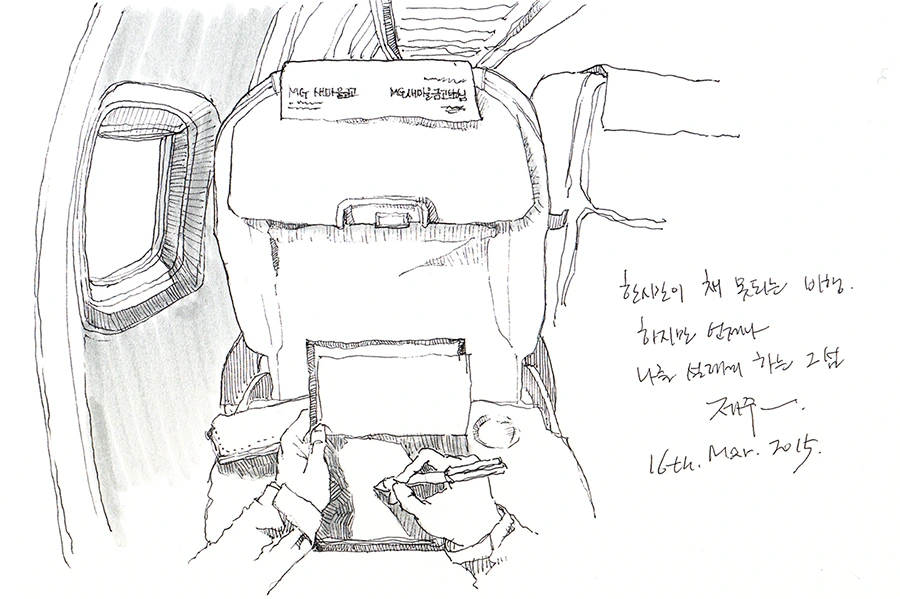 MG 새마을금고
MG새마을금고
한시간이 채 못되는 비행.
하지만 언제나
나를 설레게 하는 그 섬
제주ㅡ.
16th. Mar. 2015.